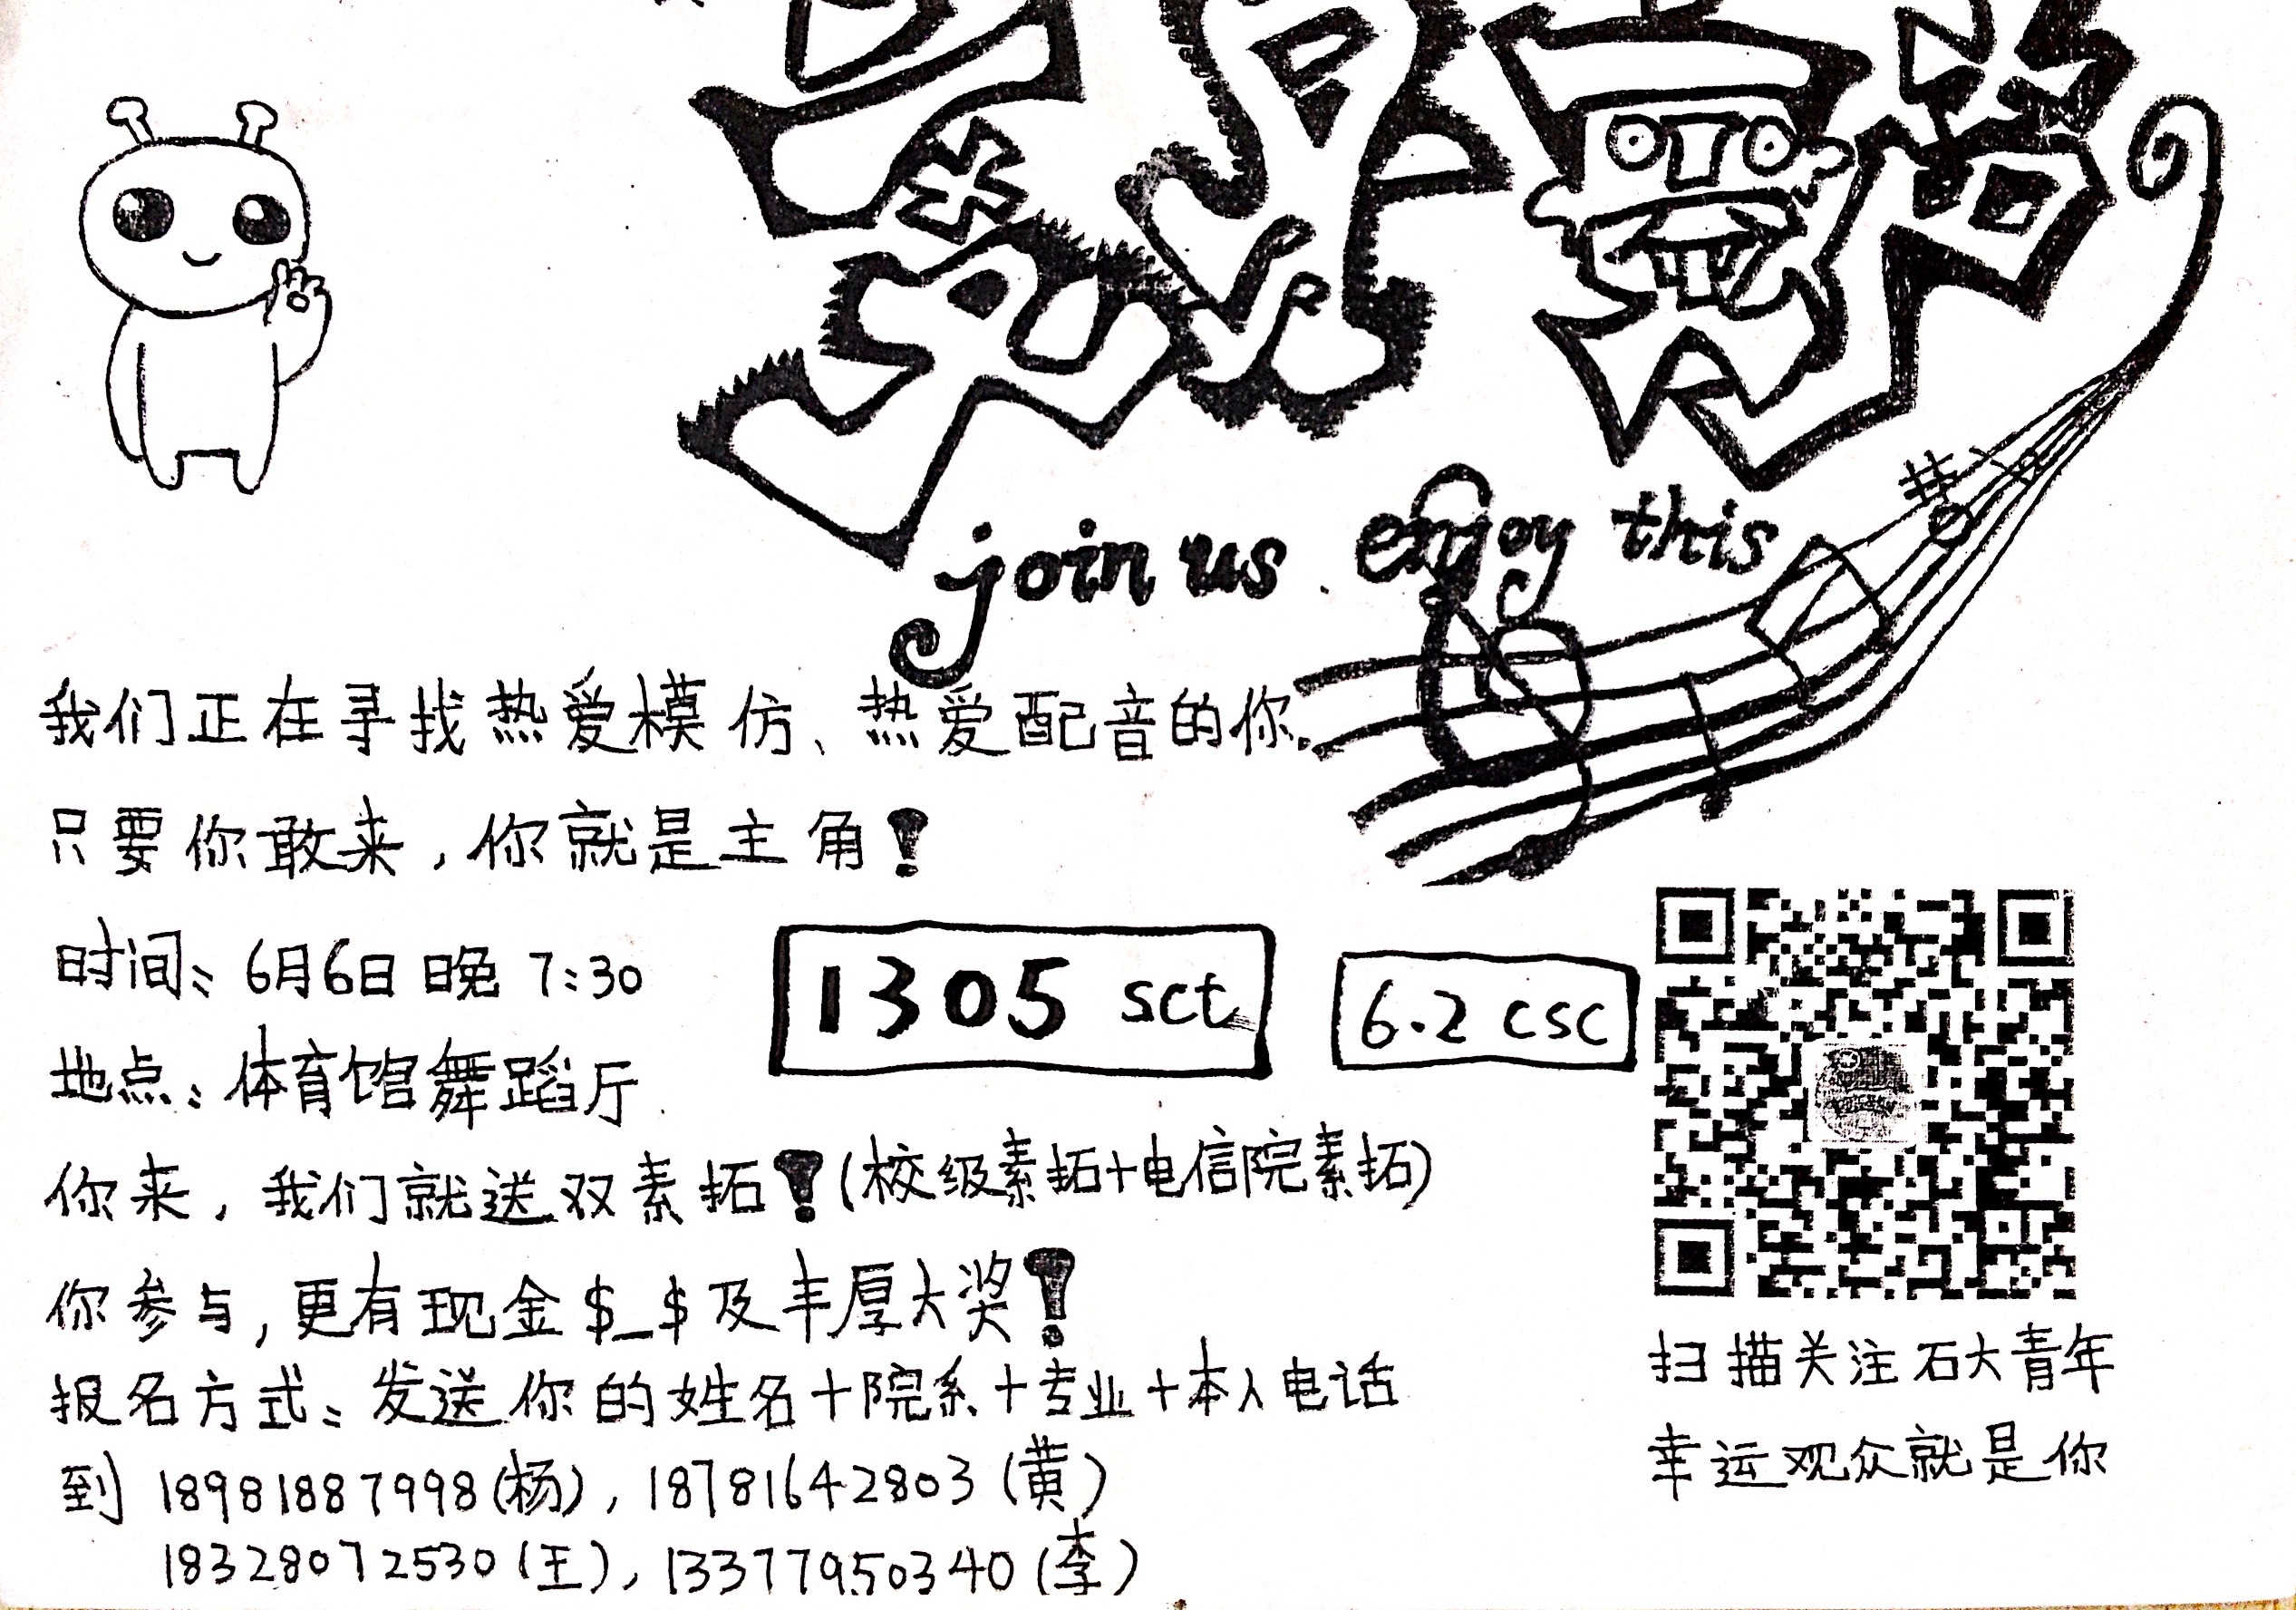 join us enjoy this
我们正在寻找热爱模仿、热爱配音的你。
只要你敢来，你就是主角！
时间：6月6日 晚 7:30
1305 sct
6.2 csc
地点：体育馆舞蹈厅
你来，我们就送双素拓！(校级素拓+电信院素拓)
你参与，更有现金$_$及丰厚大奖！
报名方式：发送你的姓名+院系+专业+本人电话
到 18981887998(杨)，18781642803(黄)
18328072530(王)，13377950340(李)
扫描关注石大青年
幸运观众就是你